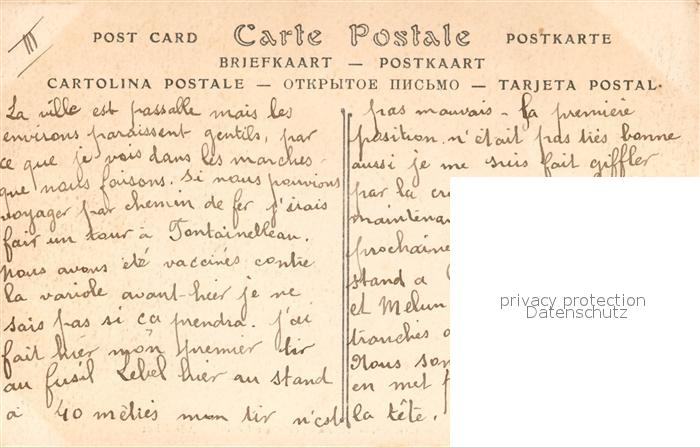 III
POST CARD Carte Postale POSTKARTE
BRIEFKAART — POSTKAART
CARTOLINA POSTALE — ОТКРЫТОЕ ПИСЬМО — TARJETA POSTAL.
La ville est passalle mais les
environs paraissent gentils, par
ce que je vois dans les marches
que nous faisons. Si nous pouvions
voyager par chemin de fer j'irais
fair un tour à Fontainelleau.
Nous avons été vaccinés contre
la variole avant-hier je ne
sais pas si ça prendra. J'ai
fait hier mon premier tir
au fusil Lebel hier au stand
à 40 mètres mon tir n'est
pas mauvais - La première
position n'était pas très bonne
aussi je me suis fait giffler
par la
maintenan
prochaine
stand a
et Melun
tranches
Nous son
en met
la tête.
privacy protection
Datenschutz